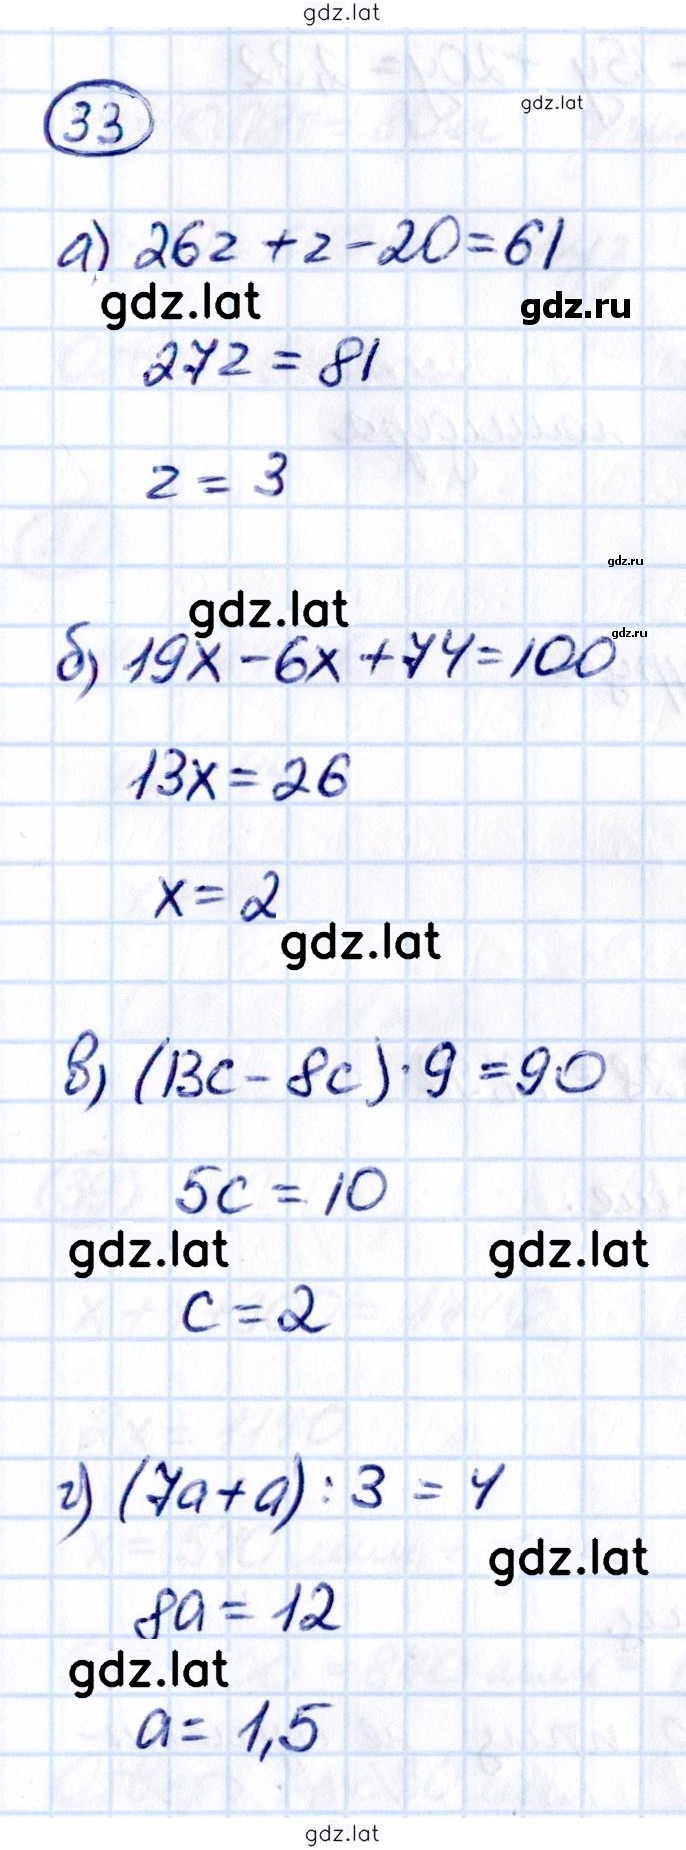 gdz.lat
33
gdz.lat
а) 26z + z - 20 = 61
gdz.lat
gdz.ru
27z = 81
z = 3
gdz.ru
gdz.lat
gdz.ru
б) 19x - 6x + 74 = 100
13x = 26
x = 2
gdz.lat
в) (13c - 8c) · 9 = 90
5c = 10
gdz.lat
gdz.lat
c = 2
г) (7a + a) : 3 = 4
gdz.lat
8a = 12
gdz.lat
a = 1,5
gdz.lat